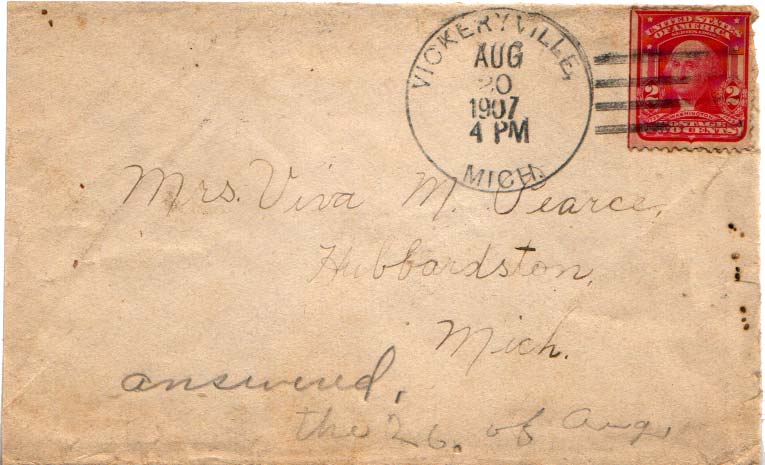 VICKERYVILLE,
AUG
20
1907
4 PM
MICH.
UNITED STATES
OF AMERICA
2 WASHINGTON 2
POSTAGE
TWO CENTS
Mrs. Viva M. Pearce,
Hubbardston,
Mich.
answered,
the 26. of Aug.